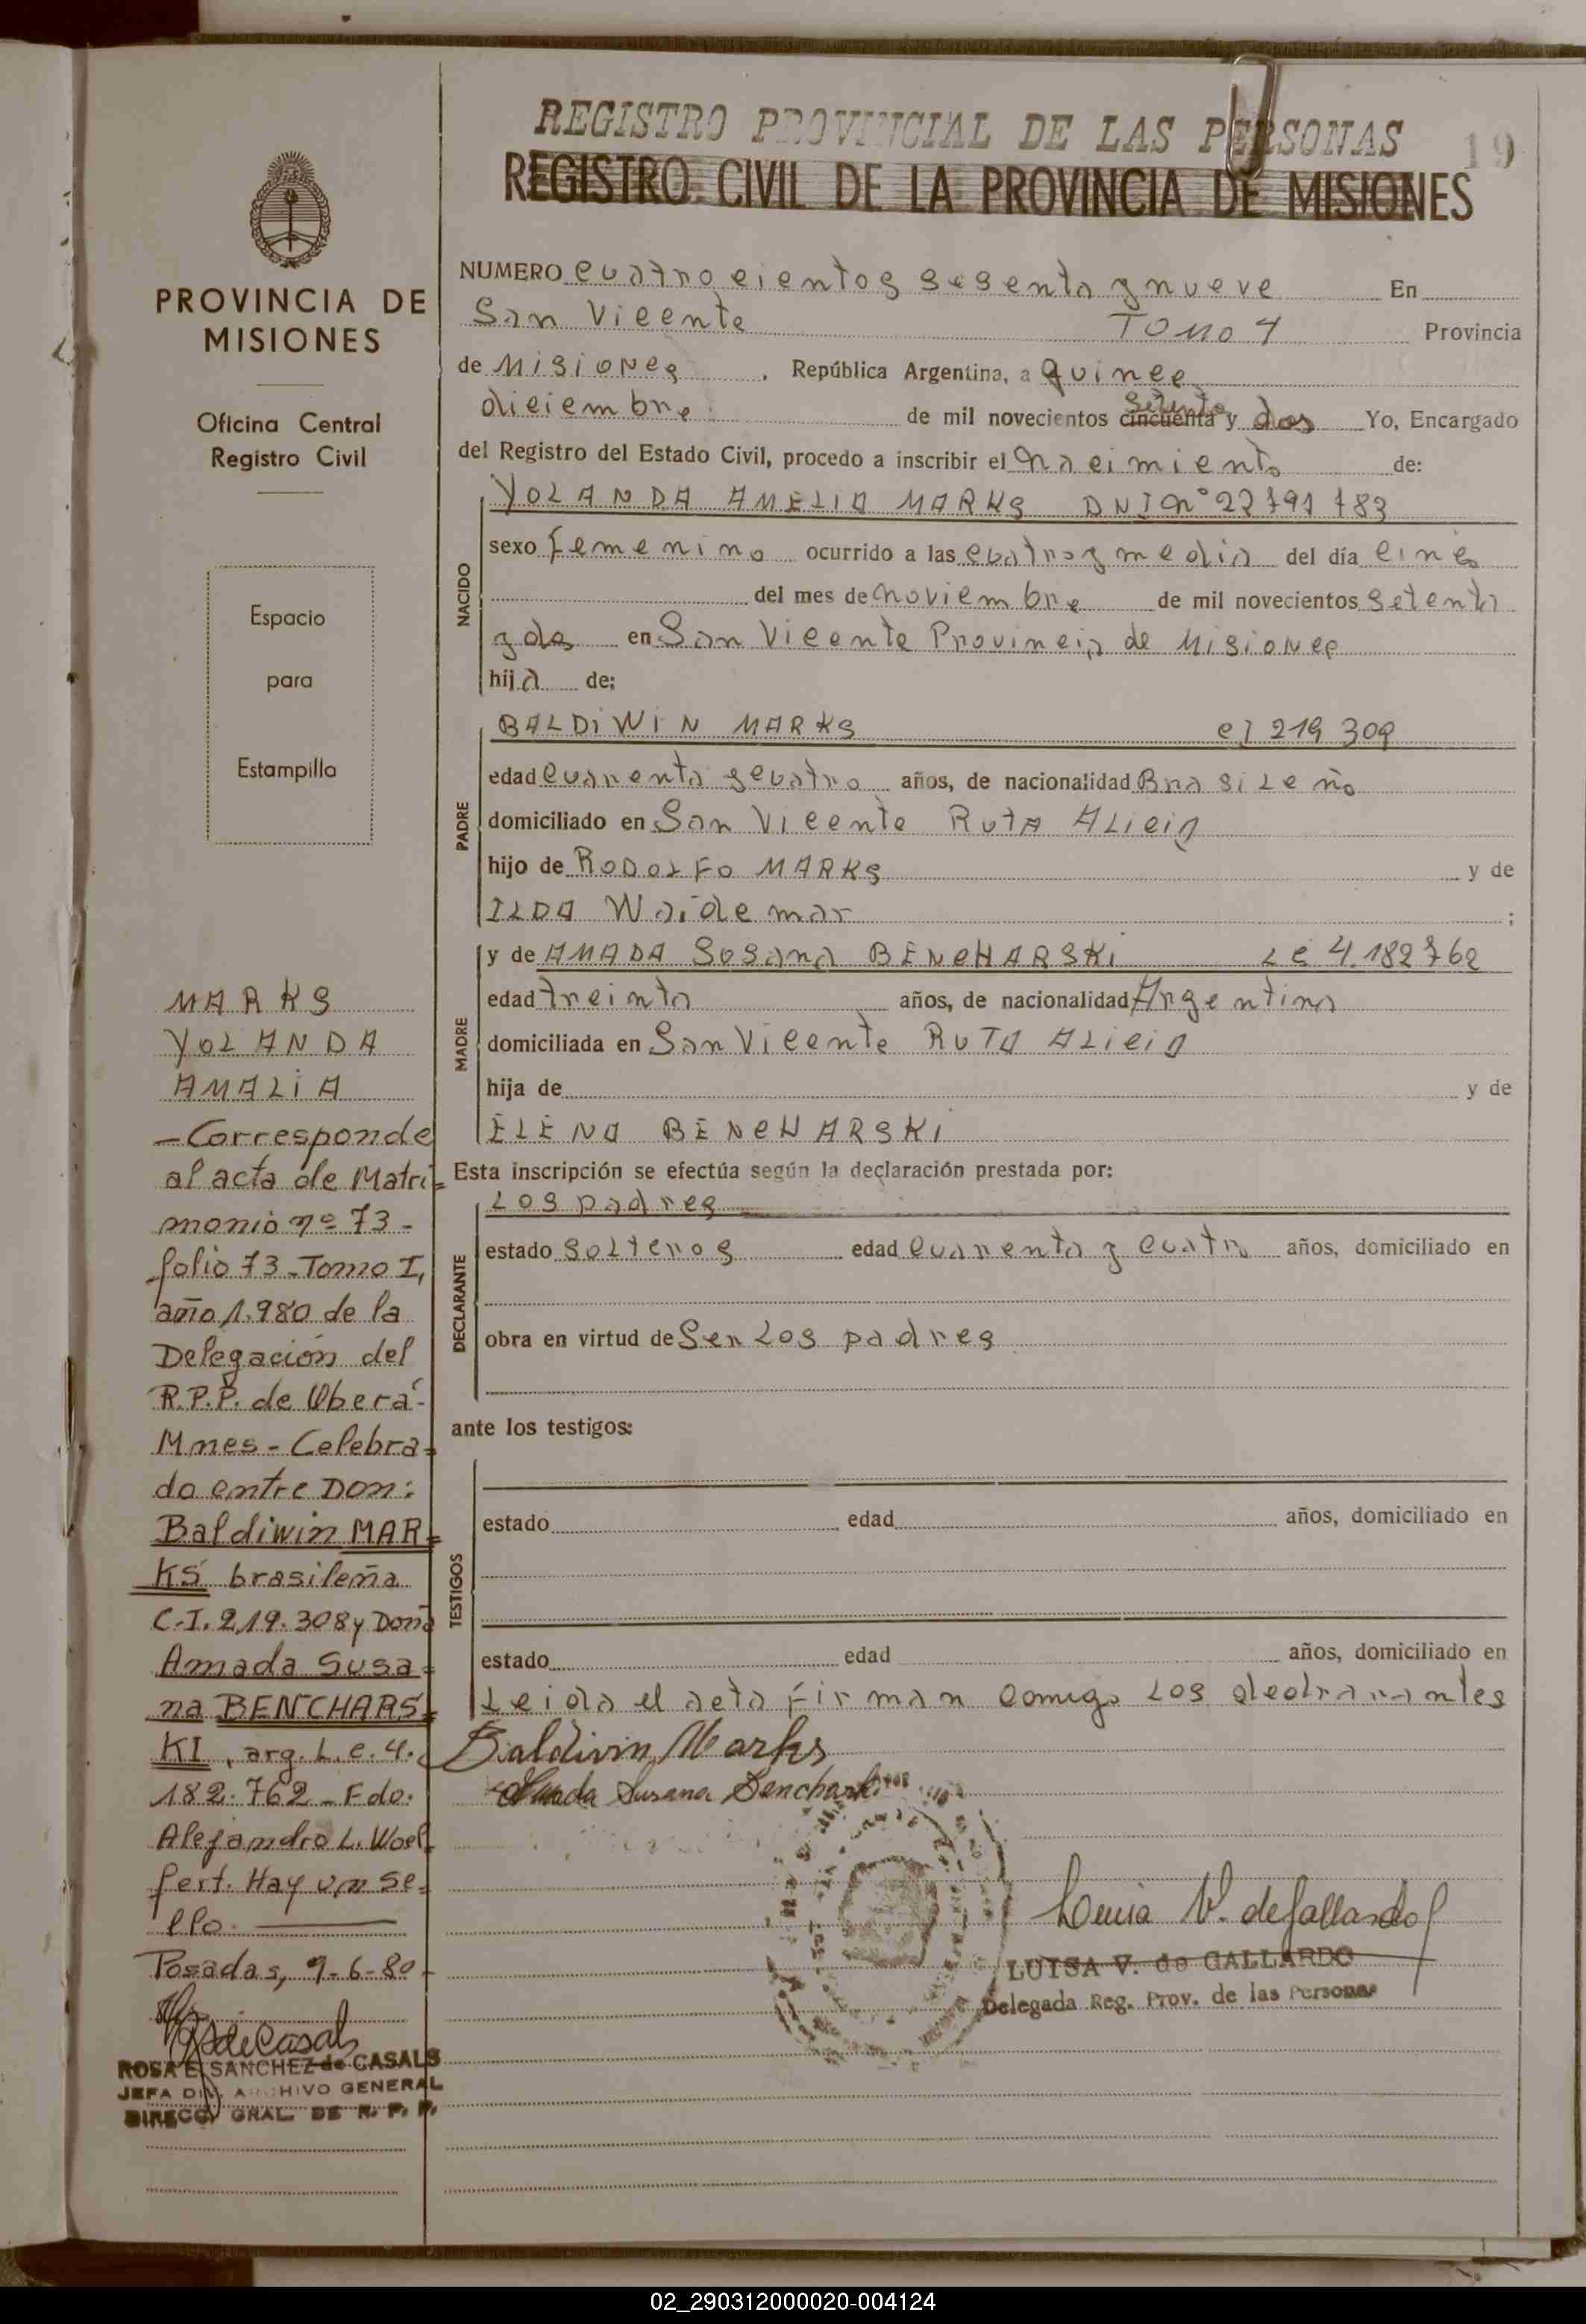 REGISTRO PROVINCIAL DE LAS PERSONAS 19
REGISTRO CIVIL DE LA PROVINCIA DE MISIONES
PROVINCIA DE
MISIONES
Oficina Central
Registro Civil
Espacio
para
Estampilla
NUMERO cuatrocientos sesenta y nueve En
San Vicente Tomo 4 Provincia
de Misiones , República Argentina, a quince
diciembre de mil novecientos cincuenta setenta y dos Yo, Encargado
del Registro del Estado Civil, procedo a inscribir el nacimiento de:
NACIDO
YOLANDA AMELIA MARKS DNI nº 22791783
sexo femenino ocurrido a las cuatro y media del día cinco
del mes de noviembre de mil novecientos setenta
y dos en San Vicente Provincia de Misiones
hija de:
PADRE
BALDIWIN MARKS CI 219 309
edad cuarenta y cuatro años, de nacionalidad Brasileño
domiciliado en San Vicente RUTA ALicia
hijo de RODOLFO MARKS y de
ILDA Waidemar ;
MADRE
y de AMADA SUSana BENCHARSKI LC 4.182762
edad treinta años, de nacionalidad Argentina
domiciliada en San Vicente RUTA ALicia
hija de y de
ELENA BENCHARSKI
Esta inscripción se efectúa según la declaración prestada por:
DECLARANTE
Los padres
estado solteros edad cuarenta y cuatro años, domiciliado en
obra en virtud de Ser Los padres
ante los testigos:
TESTIGOS
estado edad años, domiciliado en
estado edad años, domiciliado en
Leida el acta firman comigo Los declarantes
Baldivin Marks
Amada Susana Bencharski
Luisa V. de Gallardo
LUISA V. de GALLARDO
Delegada Reg. Prov. de las Personas
MARKS
YOLANDA
AMALIA
-Corresponde
al acta de Matri-
monio nº 73-
folio 73-Tomo I,
año 1.980 de la
Delegación del
R.P.P. de Oberá-
Mnes-Celebra-
do entre Don:
Baldiwin MAR-
KS brasileña
C.I. 219.308 y Doña
Amada Susa-
na BENCHARS-
KI, arg. L.C. 4.
182.762-Fdo.
Alejandro L. Woel-
fert. Hay un se-
llo.
Posadas, 9-6-80
RSdeCasals
ROSA E. SANCHEZ de CASALS
JEFA DIV. ARCHIVO GENERAL
DIRECC. GRAL. DE R. P. P.
02_290312000020-004124